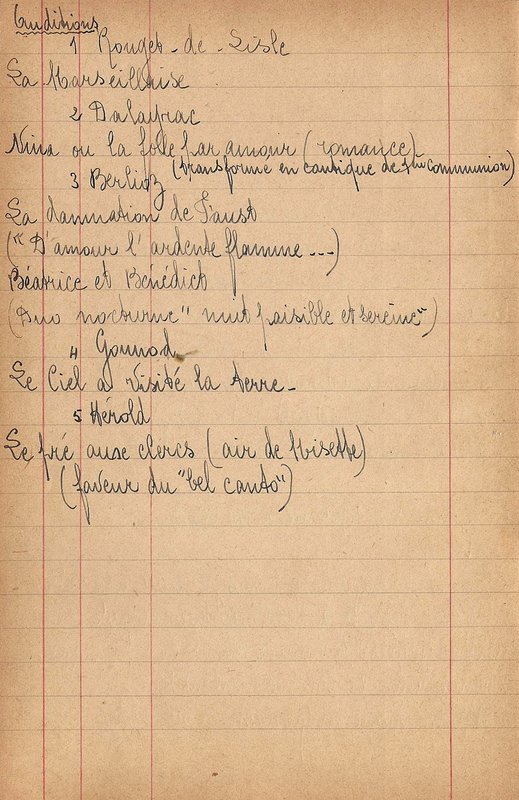 Auditions
1 Rouget-de-Lisle
La Marseillaise
2 Dalayrac
Nina ou la folle par amour (romance)
(transformé en cantique de 1ère communion)
3 Berlioz
La damnation de Faust
("D'amour l'ardente flamme ...)
Béatrice et Bénédict
(Duo nocturne "nuit paisible et sereine")
4 Gounod
Le Ciel a visité la terre-
5 Hérold
Le pré aux clercs (air de Nisette)
(faveur du "bel canto")